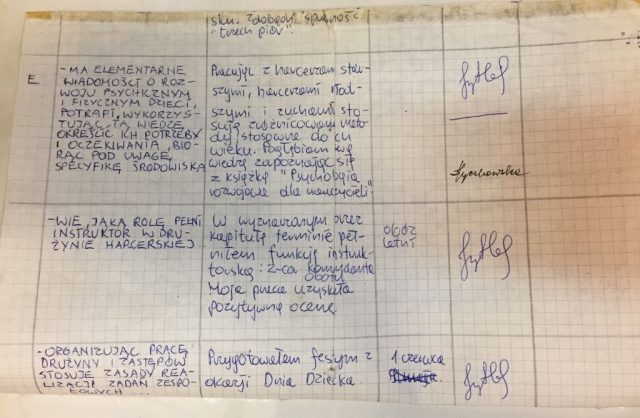 sku. Zdobądź sprawność
"trzech piór".
E
- MA ELEMENTARNE
WIADOMOŚCI O ROZ-
WOJU PSYCHICZNYM
I FIZYCZNYM DZIECI,
POTRAFI, WYKORZYS-
TUJĄC TĄ WIEDZĘ
OKREŚLIĆ ICH POTRZEBY
I OCZEKIWANIA, BIO-
RĄC POD UWAGĘ
SPECYFIKĘ ŚRODOWISKA
Pracując z harcerzami star-
szymi, harcerzami młod-
szymi i zuchami sto-
suję zróżnicowane meto-
dy stosowne do ich
wieku. Pogłębiam swą
wiedzę zapoznając się
z książką "Psychologia
rozwojowa dla nauczycieli".
- WIE, JAKĄ ROLĘ PEŁNI
INSTRUKTOR W DRU-
ŻYNIE HARCERSKIEJ
W wyznaczonym przez
kapitułę terminie peł-
niłem funkcję instruk-
torską: z-ca komendanta
obozu
Moja praca uzyskała
pozytywną ocenę
obóz
letni
- ORGANIZUJĄC PRACĘ
DRUŻYNY I ZASTĘPÓW
STOSUJE ZASADY REA-
LIZACJI ZADAŃ ZESPO-
ŁOWYCH ...
Przygotowałem festyn z
okazji Dnia Dziecka.
1 czerwca